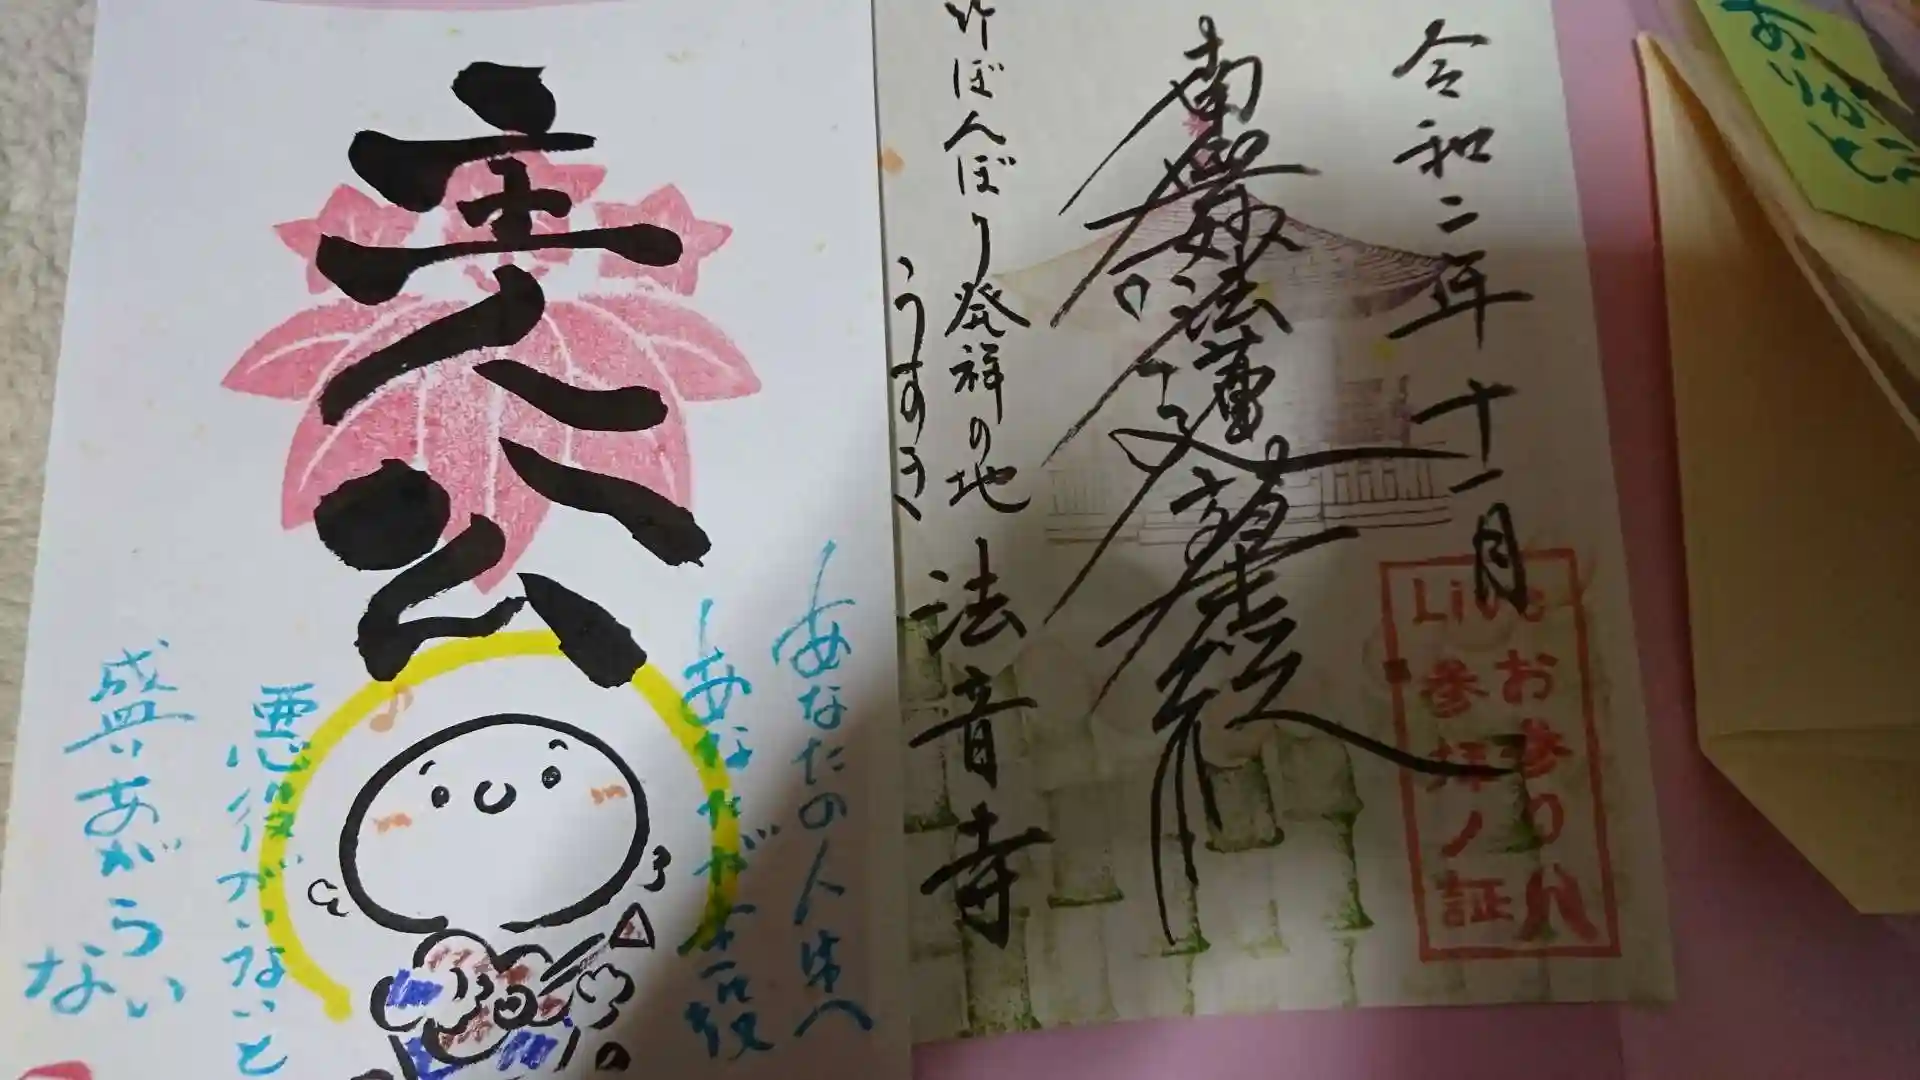 ありがとう
令和二年十一月
南無妙法蓮華経
竹ぼんぼり発祥の地
うすき
法音寺
Liveお参り
参拝ノ証
主人公
あなたの人生
あなたが主役
悪役がいないと
盛りあがらない